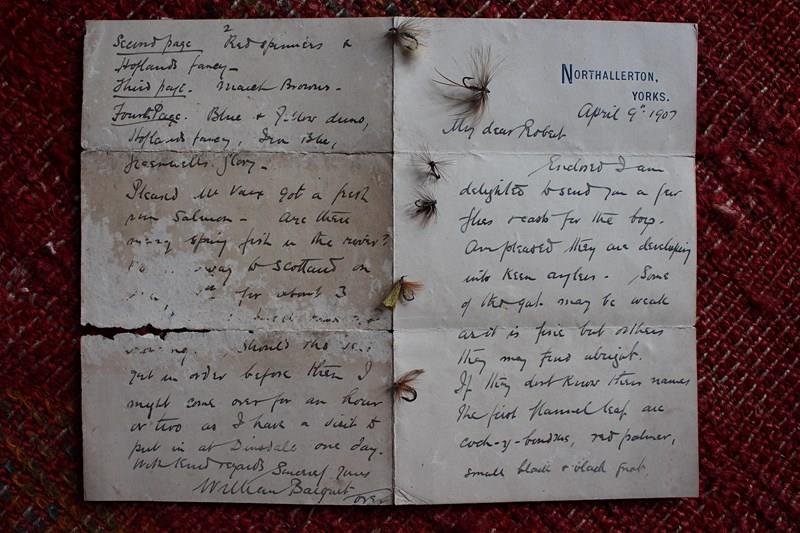 NORTHALLERTON,
YORKS.
April 9th 1907
My dear Robert
Enclosed I am
delighted to send you a few
flies & casts for the boys.
Am pleased they are developing
into keen anglers. Some
of the gut may be weak
as it is fine but others
they may find alright.
If they dont know their names
The first flannel leaf are
coch-y-bondus, red palmer,
small black & black gnat.
Second page 2 Red spinners &
Hoflands fancy -
Third page. March Browns -
Fourth Page. Blue & Yellow duns,
Hoflands fancy, Iron Blue,
Greenwells Glory -
Pleased Mr Vaux got a fresh
run Salmon - Are there
many spring fish in the river?
way to Scotland on
for about 3
Should the
get in order before then I
might come over for an hour
or two as I have a visit to
put in at Dinsdale one day.
With kind regards Sincerely Yours
William
over